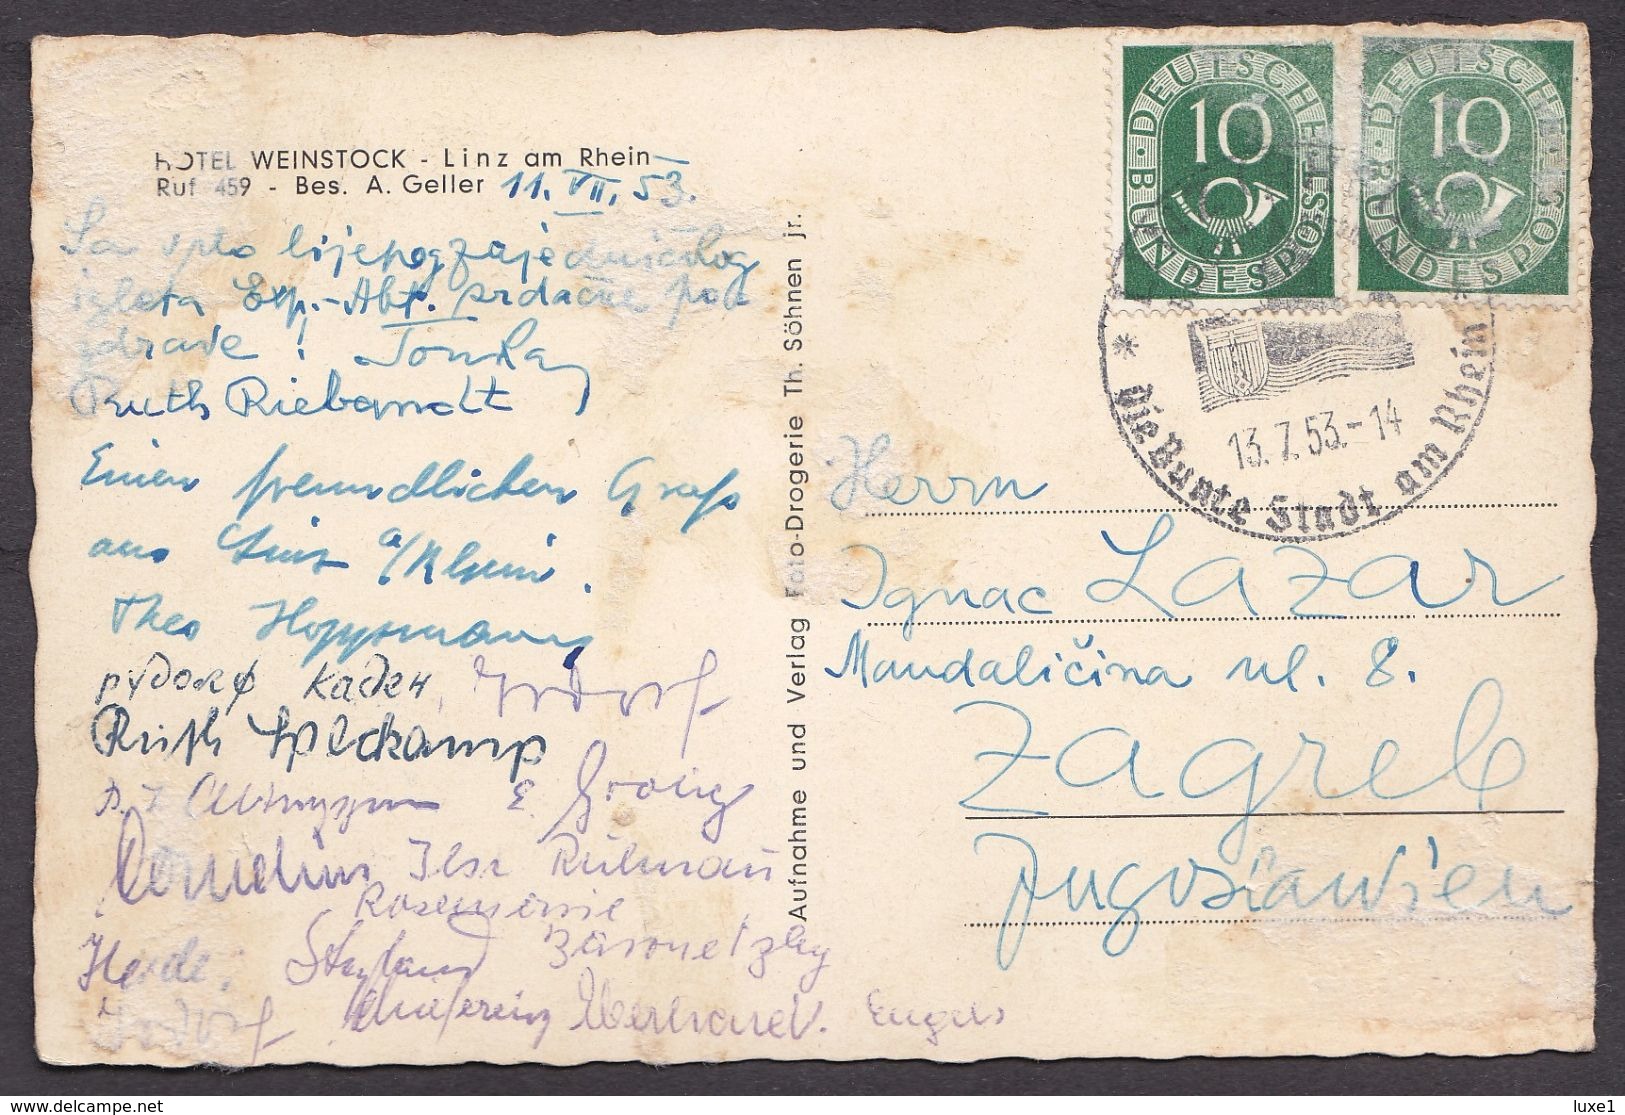 HOTEL WEINSTOCK - Linz am Rhein
Ruf 459 - Bes. A. Geller 11. VII. 53.
Sa vrlo lijepog zajedničkog
izleta Exp.-Abt. srdačne poz
zdrave!
Ruth Riebandt
Einen freundlichen Gruß
aus Linz a/Rhein.
Theo Hoppmann
рудолф каден
Ruth
E.
Cornelius Ilse Rülmau
Rosemarie
Heide
Eberhard. Engels
Aufnahme und Verlag Foto-Drogerie Th. Söhnen jr.
DEUTSCHE BUNDESPOST
10
DEUTSCHE BUNDESPOST
10
* Die Bunte Stadt am Rhein
13.7.53.-14
Herrn
Ignac Lazar
Mandaličina ul. 8.
Zagreb
Jugoslawien
www.delcampe.net
luxe1